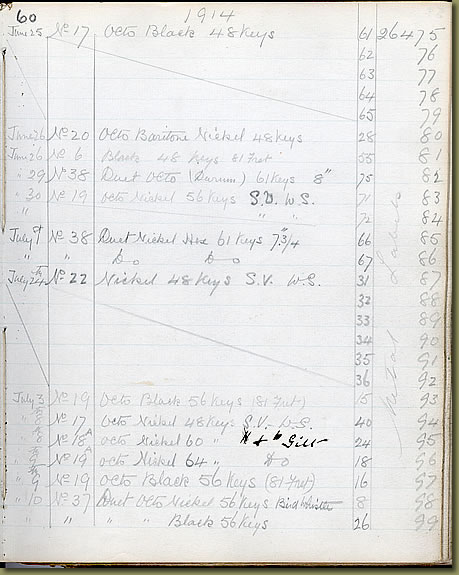 60 1914
June 25 No 17 Octo Black 48 Keys 61 26475
62 76
63 77
64 78
65 79
June 26 No 20 Octo Baritone Nickel 48 Keys 28 80
June 26 No 6 Black 48 Keys 81 Fret 55 81
" 29 No 38 Duet Octo 61 Keys 8" 75 82
" 30 No 19 Octo Nickel 56 Keys S.V. W.S. 71 83
" " " 72 84
July 9 No 38 Duet Nickel Hex 61 Keys 7 3/4" 66 85
" " Do Do 67 86
July 24th No 22 Nickel 48 Keys S.V. W.S. 31 87
32 88
33 89
34 90
35 91
36 92
July 3 No 19 Octo Black 56 Keys (81 Fret) 15 93
No 17 Octo Nickel 48 Keys S.V. W.S. 40 94
8 No 18A Octo Nickel 60 " Gilt 24 95
No 19A Octo Nickel 64 " Do 18 96
9 No 19 Octo Black 56 Keys (81 Fret) 16 97
" 10 No 37 Duet Octo Nickel 56 Keys Bird Whistle 8 98
" " " " Black 56 Keys 26 99
Metal Labels